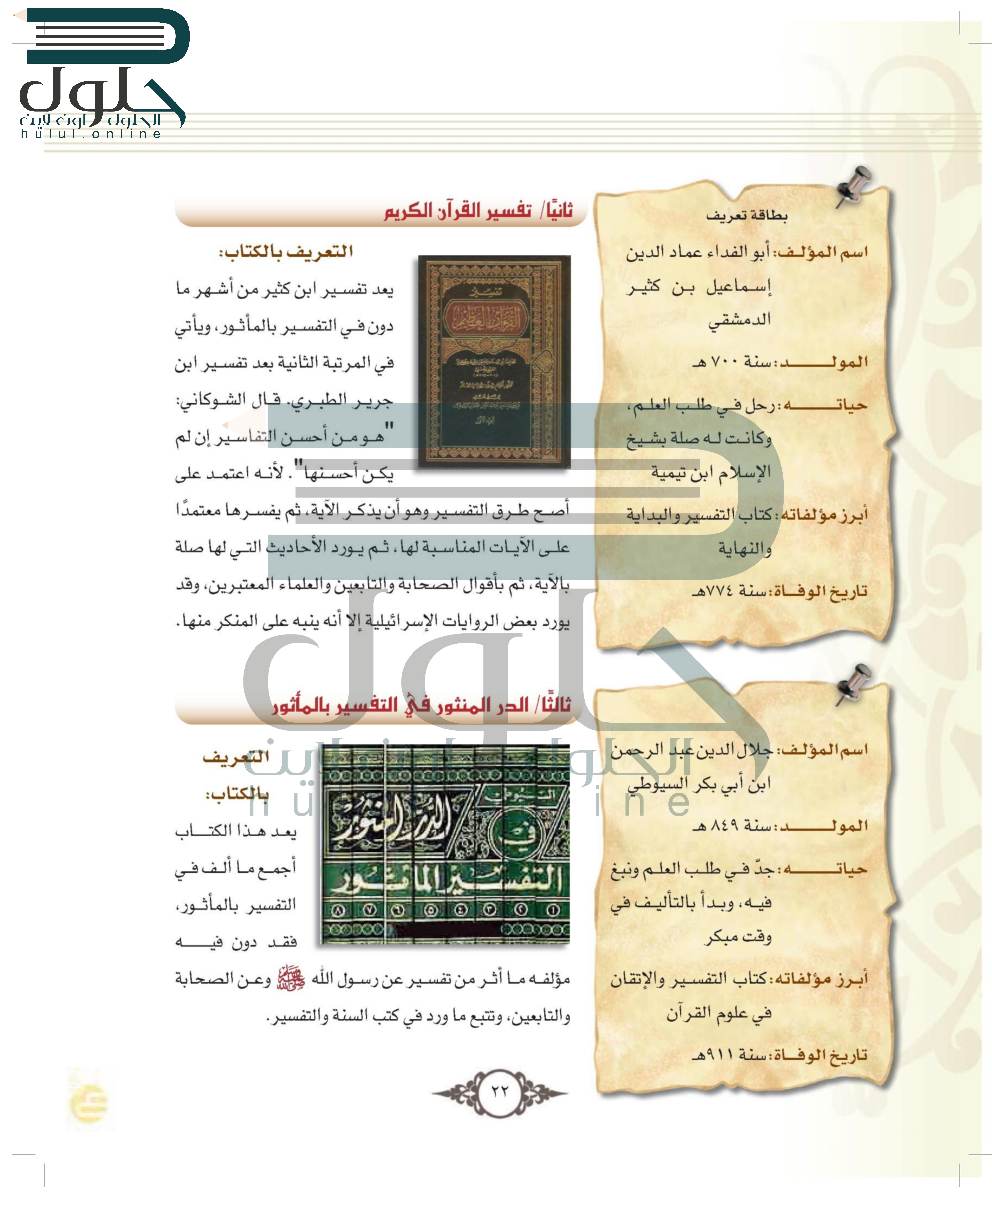 حلول
الحلول اون لاين
hulul.online
بطاقة تعريف
اسم المؤلف: أبو الفداء عماد الدين
إسماعيل بن كثير
الدمشقي
المولد: سنة ٧٠٠ هـ
حياته: رحل في طلب العلم،
وكانت له صلة بشيخ
الإسلام ابن تيمية
أبرز مؤلفاته: كتاب التفسير والبداية
والنهاية
تاريخ الوفاة: سنة ٧٧٤هـ
ثانيًا/ تفسير القرآن الكريم
التعريف بالكتاب:
يعد تفسير ابن كثير من أشهر ما
دون في التفسير بالمأثور، ويأتي
في المرتبة الثانية بعد تفسير ابن
جرير الطبري. قال الشوكاني:
"هو من أحسن التفاسير إن لم
يكن أحسنها". لأنه اعتمد على
أصح طرق التفسير وهو أن يذكر الآية، ثم يفسرها معتمدًا
على الآيات المناسبة لها، ثم يورد الأحاديث التي لها صلة
بالآية، ثم بأقوال الصحابة والتابعين والعلماء المعتبرين، وقد
يورد بعض الروايات الإسرائيلية إلا أنه ينبه على المنكر منها.
تفسير
القرآن العظيم
اسم المؤلف: جلال الدين عبد الرحمن
ابن أبي بكر السيوطي
المولد: سنة ٨٤٩ هـ
حياته: جدّ في طلب العلم ونبغ
فيه، وبدأ بالتأليف في
وقت مبكر
أبرز مؤلفاته: كتاب التفسير والإتقان
في علوم القرآن
تاريخ الوفاة: سنة ٩١١هـ
ثالثًا/ الدر المنثور في التفسير بالمأثور
التعريف
بالكتاب:
يعد هذا الكتاب
أجمع ما ألف في
التفسير بالمأثور،
فقد دون فيه
مؤلفه ما أثر من تفسير عن رسول الله ﷺ وعن الصحابة
والتابعين، وتتبع ما ورد في كتب السنة والتفسير.
الدر المنثور
في
التفسير المأثور
١ ٢ ٣ ٤ ٥ ٦ ٧ ٨
حلول
الحلول اون لاين
hulul.online
٢٢